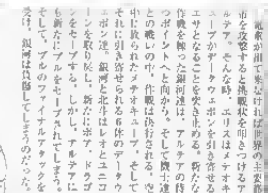 電案が出て来なければ世界の主要
市を攻撃すると挑戦状を叩きつけるア
ルテア。そんな時、エリスはメテオキ
ューブがデータウェポンを引き寄せる
エサとなることを突き止める。新たな
作戦を練った銀河達は、アルテアの待
つポイントへと向かう。そして闘士達
の戦いの中、作戦は決行される。空
中に放られたメテオキューブ。そして
それに引き寄せられる各体のデータウ
ェポン達。銀河と北斗はレオとユニコ
ーンを取り戻し、新たにボア、ドラゴ
ンをセーブする。しかし、アルテアに
も新たにブルをセーブされてしまう。
そして、ブルのファイナルアタックを
受け、銀河は負傷してしまうのだった。